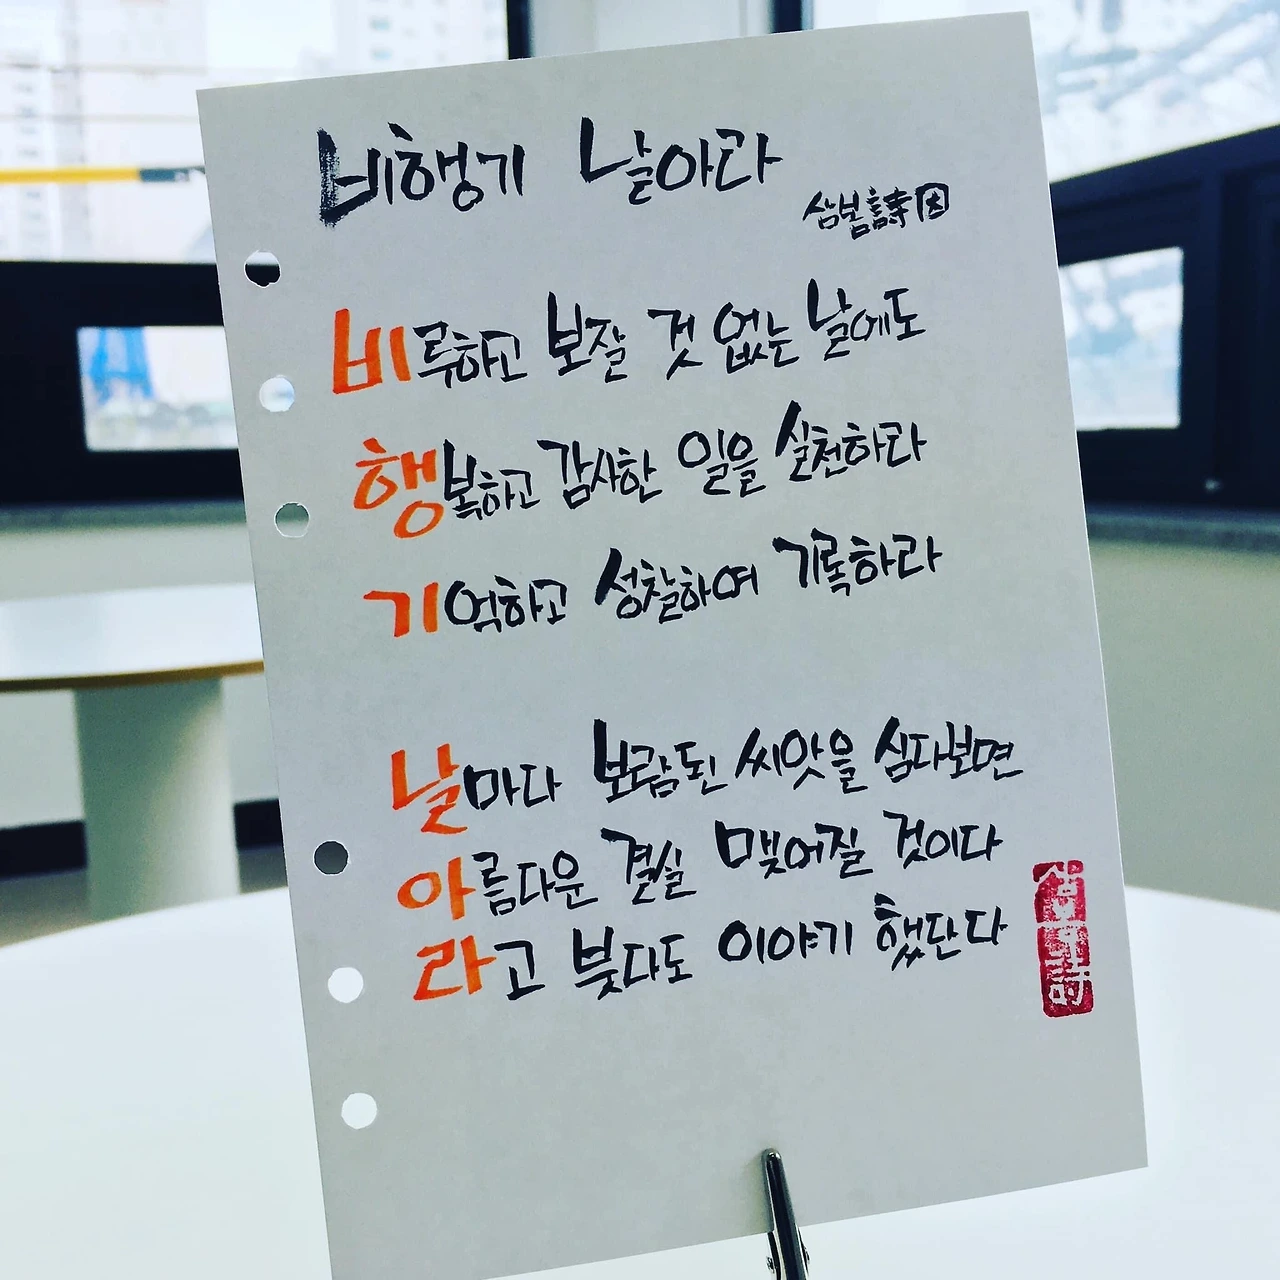 비행기 날아라
삼봄詩因
비루하고 보잘 것 없는 날에도
행복하고 감사한 일을 실천하라
기억하고 성찰하여 기록하라
날마다 보람된 씨앗을 심다보면
아름다운 결실 맺어질 것이다
라고 붓다도 이야기 했단다
삼봄詩